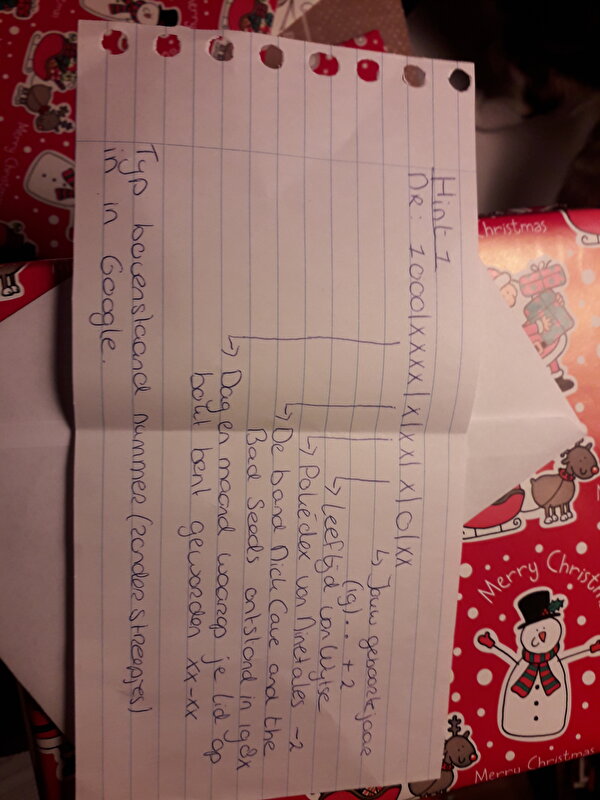 Hint 1
Nr: 1000|xxxx|x|xx|x|0|xx
↳ Jouw geboortejaar
(19).. + 2
↳ Leeftijd van Wytse
↳ Pokédex van Ninetales -2
↳ De band Nick Cave and the
Bad Seeds ontstond in 198x
↳ Dag en maand waarop je lid op
bokt bent geworden xx-xx
Typ bovenstaand nummer (zonder streepjes)
in in Google.
Christmas
Merry Christmas
Merry Christmas
Merry Christmas